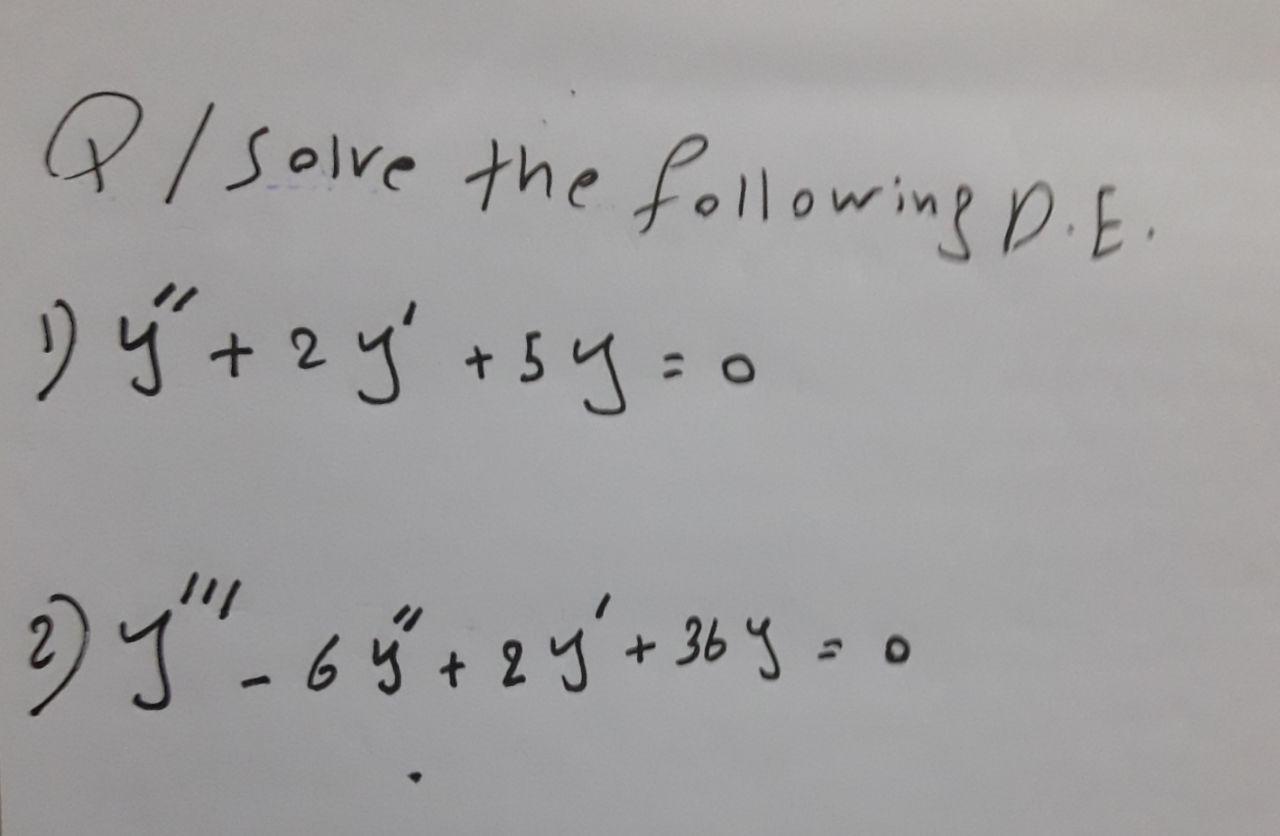 Q/ Solve the following D.E.
1) y'' + 2y' + 5y = 0
2) y''' - 6y'' + 2y' + 36y = 0